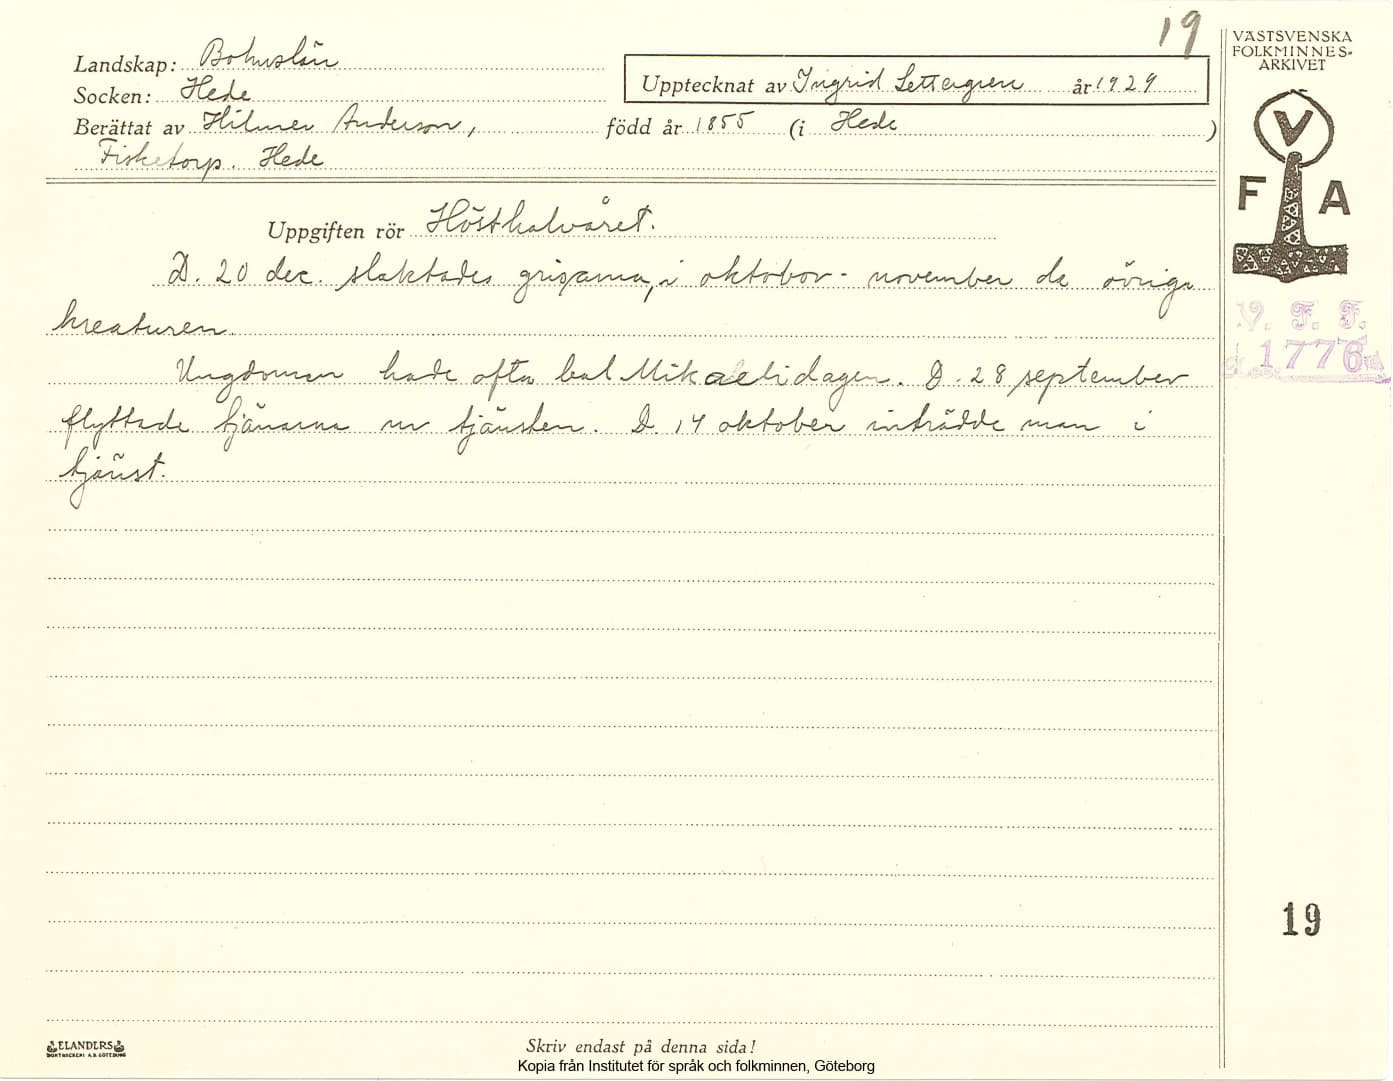 19
Landskap: Bohuslän
Socken: Hede
Upptecknat av Ingrid Settergren år 1929
Berättat av Hilmer Anderson, född år 1855 (i Hede )
Fisketorp. Hede
Uppgiften rör Hösthalvåret.
D. 20 dec. slaktades grisarna, i oktobor - november de övriga
kreaturen.
Ungdomen hade ofta bal Mikaelidagen. D. 28 september
flyttade tjänarna ur tjänsten. D. 14 oktober inträdde man i
tjänst.
VÄSTSVENSKA
FOLKMINNES-
ARKIVET
V
F A
V. F. F.
1776
19
ELANDERS
BOKTRYCKERI A.B. GÖTEBORG
Skriv endast på denna sida!
Kopia från Institutet för språk och folkminnen, Göteborg